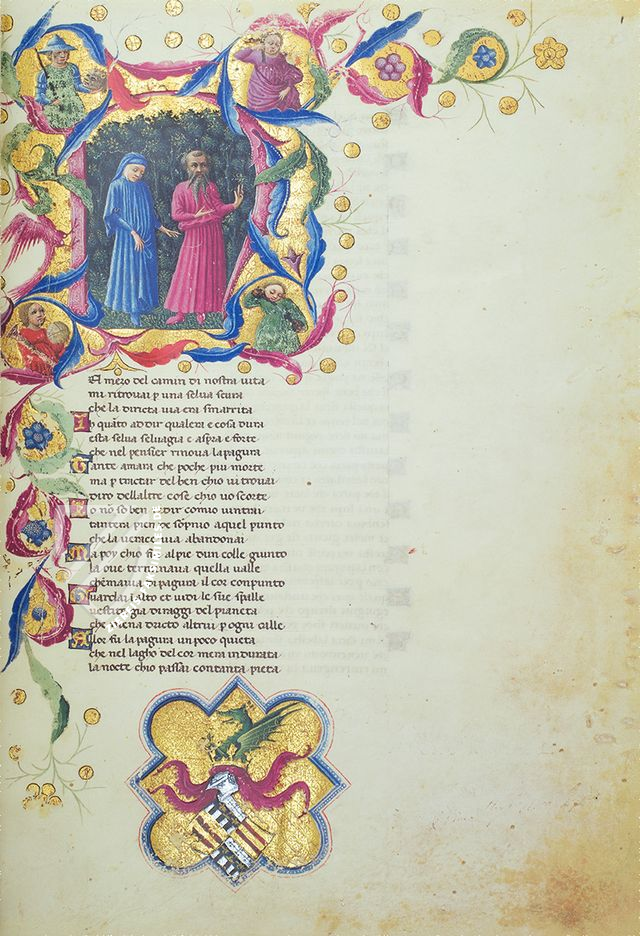 El mezo del camin di nostra vita
mi ritrovai p una selva scura
che la diricta via era smarrita
In quāto ad dir qual era e cosa dura
esta selva selvagia e aspra e forte
che nel pensier rinova la pagura
Tante amara che poche piu morte
ma p tractar del ben chio vi trovai
diro dellaltre cose chio vo scorte
Io non so ben adir comio vintrai
tantera pien de sopnio aquel punto
che la verace via abandonai
Ma poy chio fu alpie dun colle giunto
la ove terminava quella valle
chemavia di pagura il cor conpunto
Guardai ī alto et vidi le sue spalle
vestite gia di raggi del pianeta
che mena dricto altrui p ogni calle
Alor fu la pagura un poco quieta
che nel lagho del cor mera indurata
la nocte chio passai contanta pieta